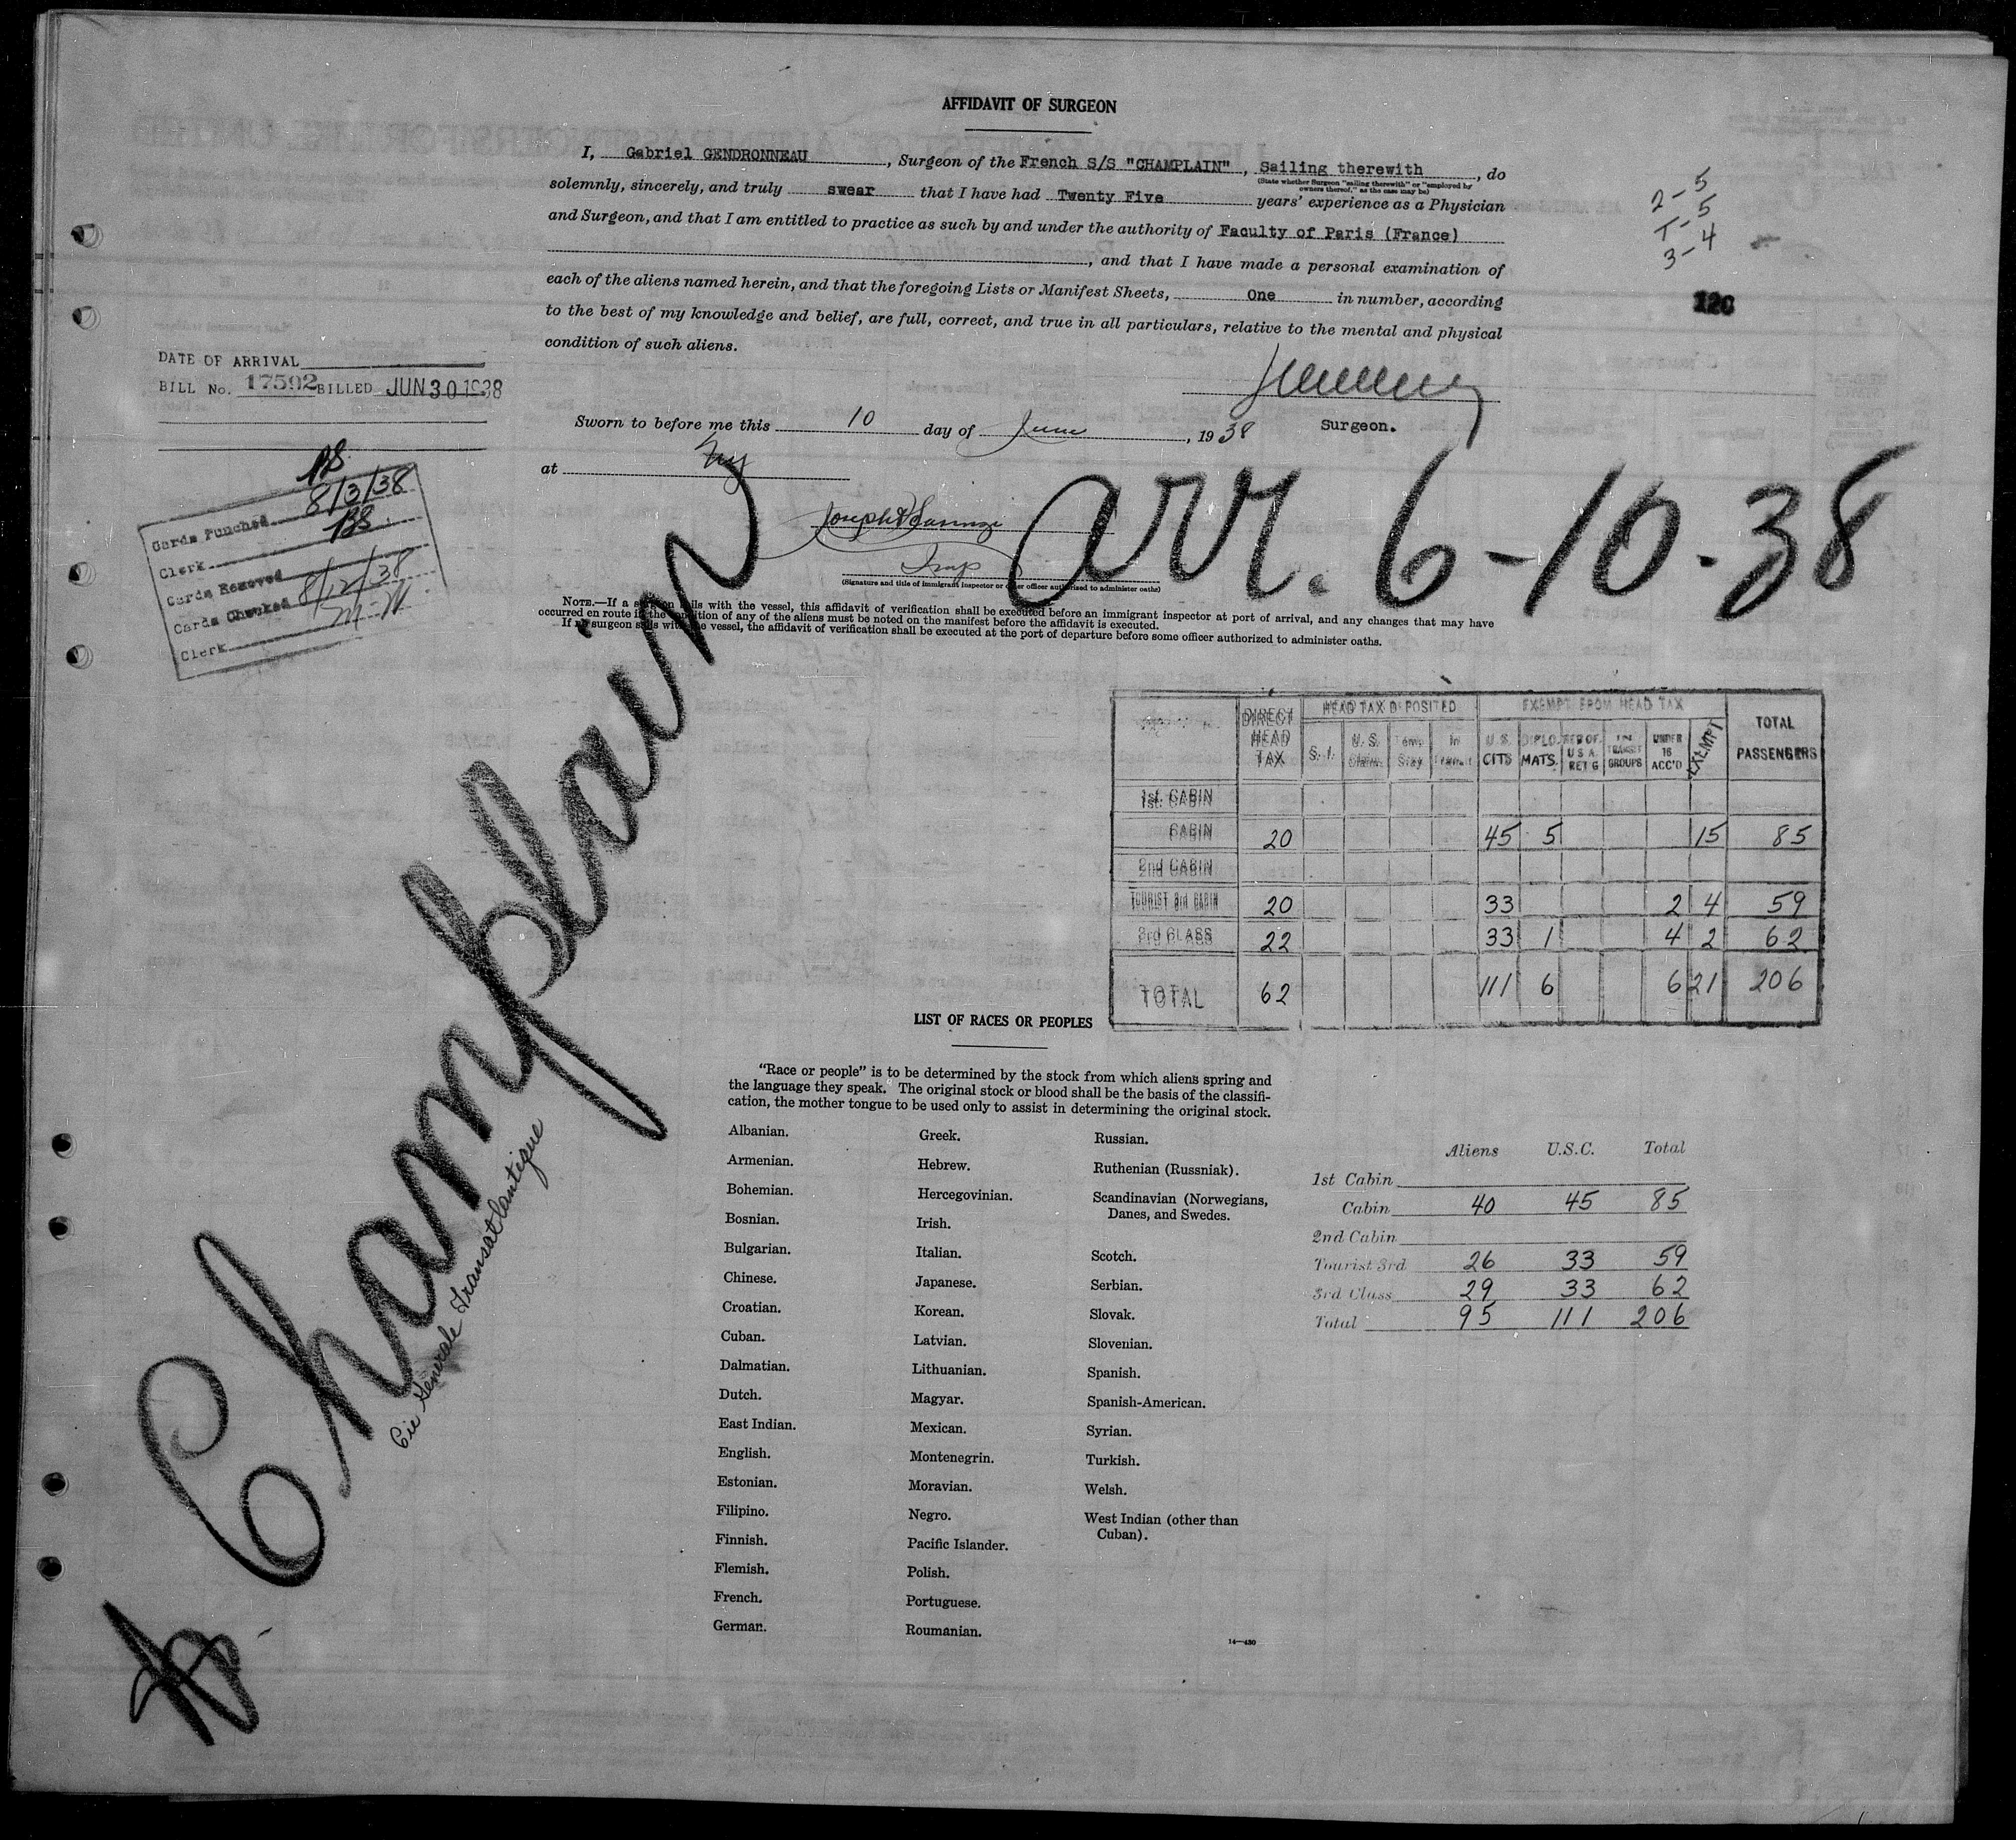 AFFIDAVIT OF SURGEON
I, Gabriel GENDRONNEAU, Surgeon of the French S/S "CHAMPLAIN", Sailing therewith, do
(State whether Surgeon "sailing therewith" or "employed by owners thereof," as the case may be)
solemnly, sincerely, and truly swear that I have had Twenty Five years' experience as a Physician
and Surgeon, and that I am entitled to practice as such by and under the authority of Faculty of Paris (France)
, and that I have made a personal examination of
each of the aliens named herein, and that the foregoing Lists or Manifest Sheets, One in number, according
to the best of my knowledge and belief, are full, correct, and true in all particulars, relative to the mental and physical
condition of such aliens.
2-5
T-5
3-4
120
DATE OF ARRIVAL
BILL No. 17592 BILLED JUN 30 1938
Surgeon.
Sworn to before me this 10 day of June, 1938
at NY
Insp
(Signature and title of immigrant inspector or other officer authorized to administer oaths)
arr. 6-10-38
Cards Punched 8/3/38
Clerk BS
Cards Removed
Cards Checked 8/12/38
Clerk M-M
NOTE.—If a surgeon sails with the vessel, this affidavit of verification shall be executed before an immigrant inspector at port of arrival, and any changes that may have
occurred en route in the condition of any of the aliens must be noted on the manifest before the affidavit is executed.
If no surgeon sails with the vessel, the affidavit of verification shall be executed at the port of departure before some officer authorized to administer oaths.
Champlain
Cie Generale Transatlantique
DIRECT HEAD TAX HEAD TAX DEPOSITED EXEMPT FROM HEAD TAX TOTAL PASSENGERS
S. I. U.S. Temp. Stay In Transit U.S. CITS DIPLOMATS. U S A RET'G TRANSIT GROUPS UNDER 16 ACC'D EXEMPT
1st. CABIN
CABIN 20 45 5 15 85
2nd CABIN
TOURIST 3rd CABIN 20 33 2 4 59
3rd CLASS 22 33 1 4 2 62
TOTAL 62 111 6 6 21 206
LIST OF RACES OR PEOPLES
"Race or people" is to be determined by the stock from which aliens spring and
the language they speak. The original stock or blood shall be the basis of the classifi-
cation, the mother tongue to be used only to assist in determining the original stock.
Albanian.
Armenian.
Bohemian.
Bosnian.
Bulgarian.
Chinese.
Croatian.
Cuban.
Dalmatian.
Dutch.
East Indian.
English.
Estonian.
Filipino.
Finnish.
Flemish.
French.
German.
Greek.
Hebrew.
Hercegovinian.
Irish.
Italian.
Japanese.
Korean.
Latvian.
Lithuanian.
Magyar.
Mexican.
Montenegrin.
Moravian.
Negro.
Pacific Islander.
Polish.
Portuguese.
Roumanian.
Russian.
Ruthenian (Russniak).
Scandinavian (Norwegians,
Danes, and Swedes.
Scotch.
Serbian.
Slovak.
Slovenian.
Spanish.
Spanish-American.
Syrian.
Turkish.
Welsh.
West Indian (other than
Cuban).
14—430
Aliens U.S.C. Total
1st Cabin
Cabin 40 45 85
2nd Cabin
Tourist 3rd 26 33 59
3rd Class 29 33 62
Total 95 111 206